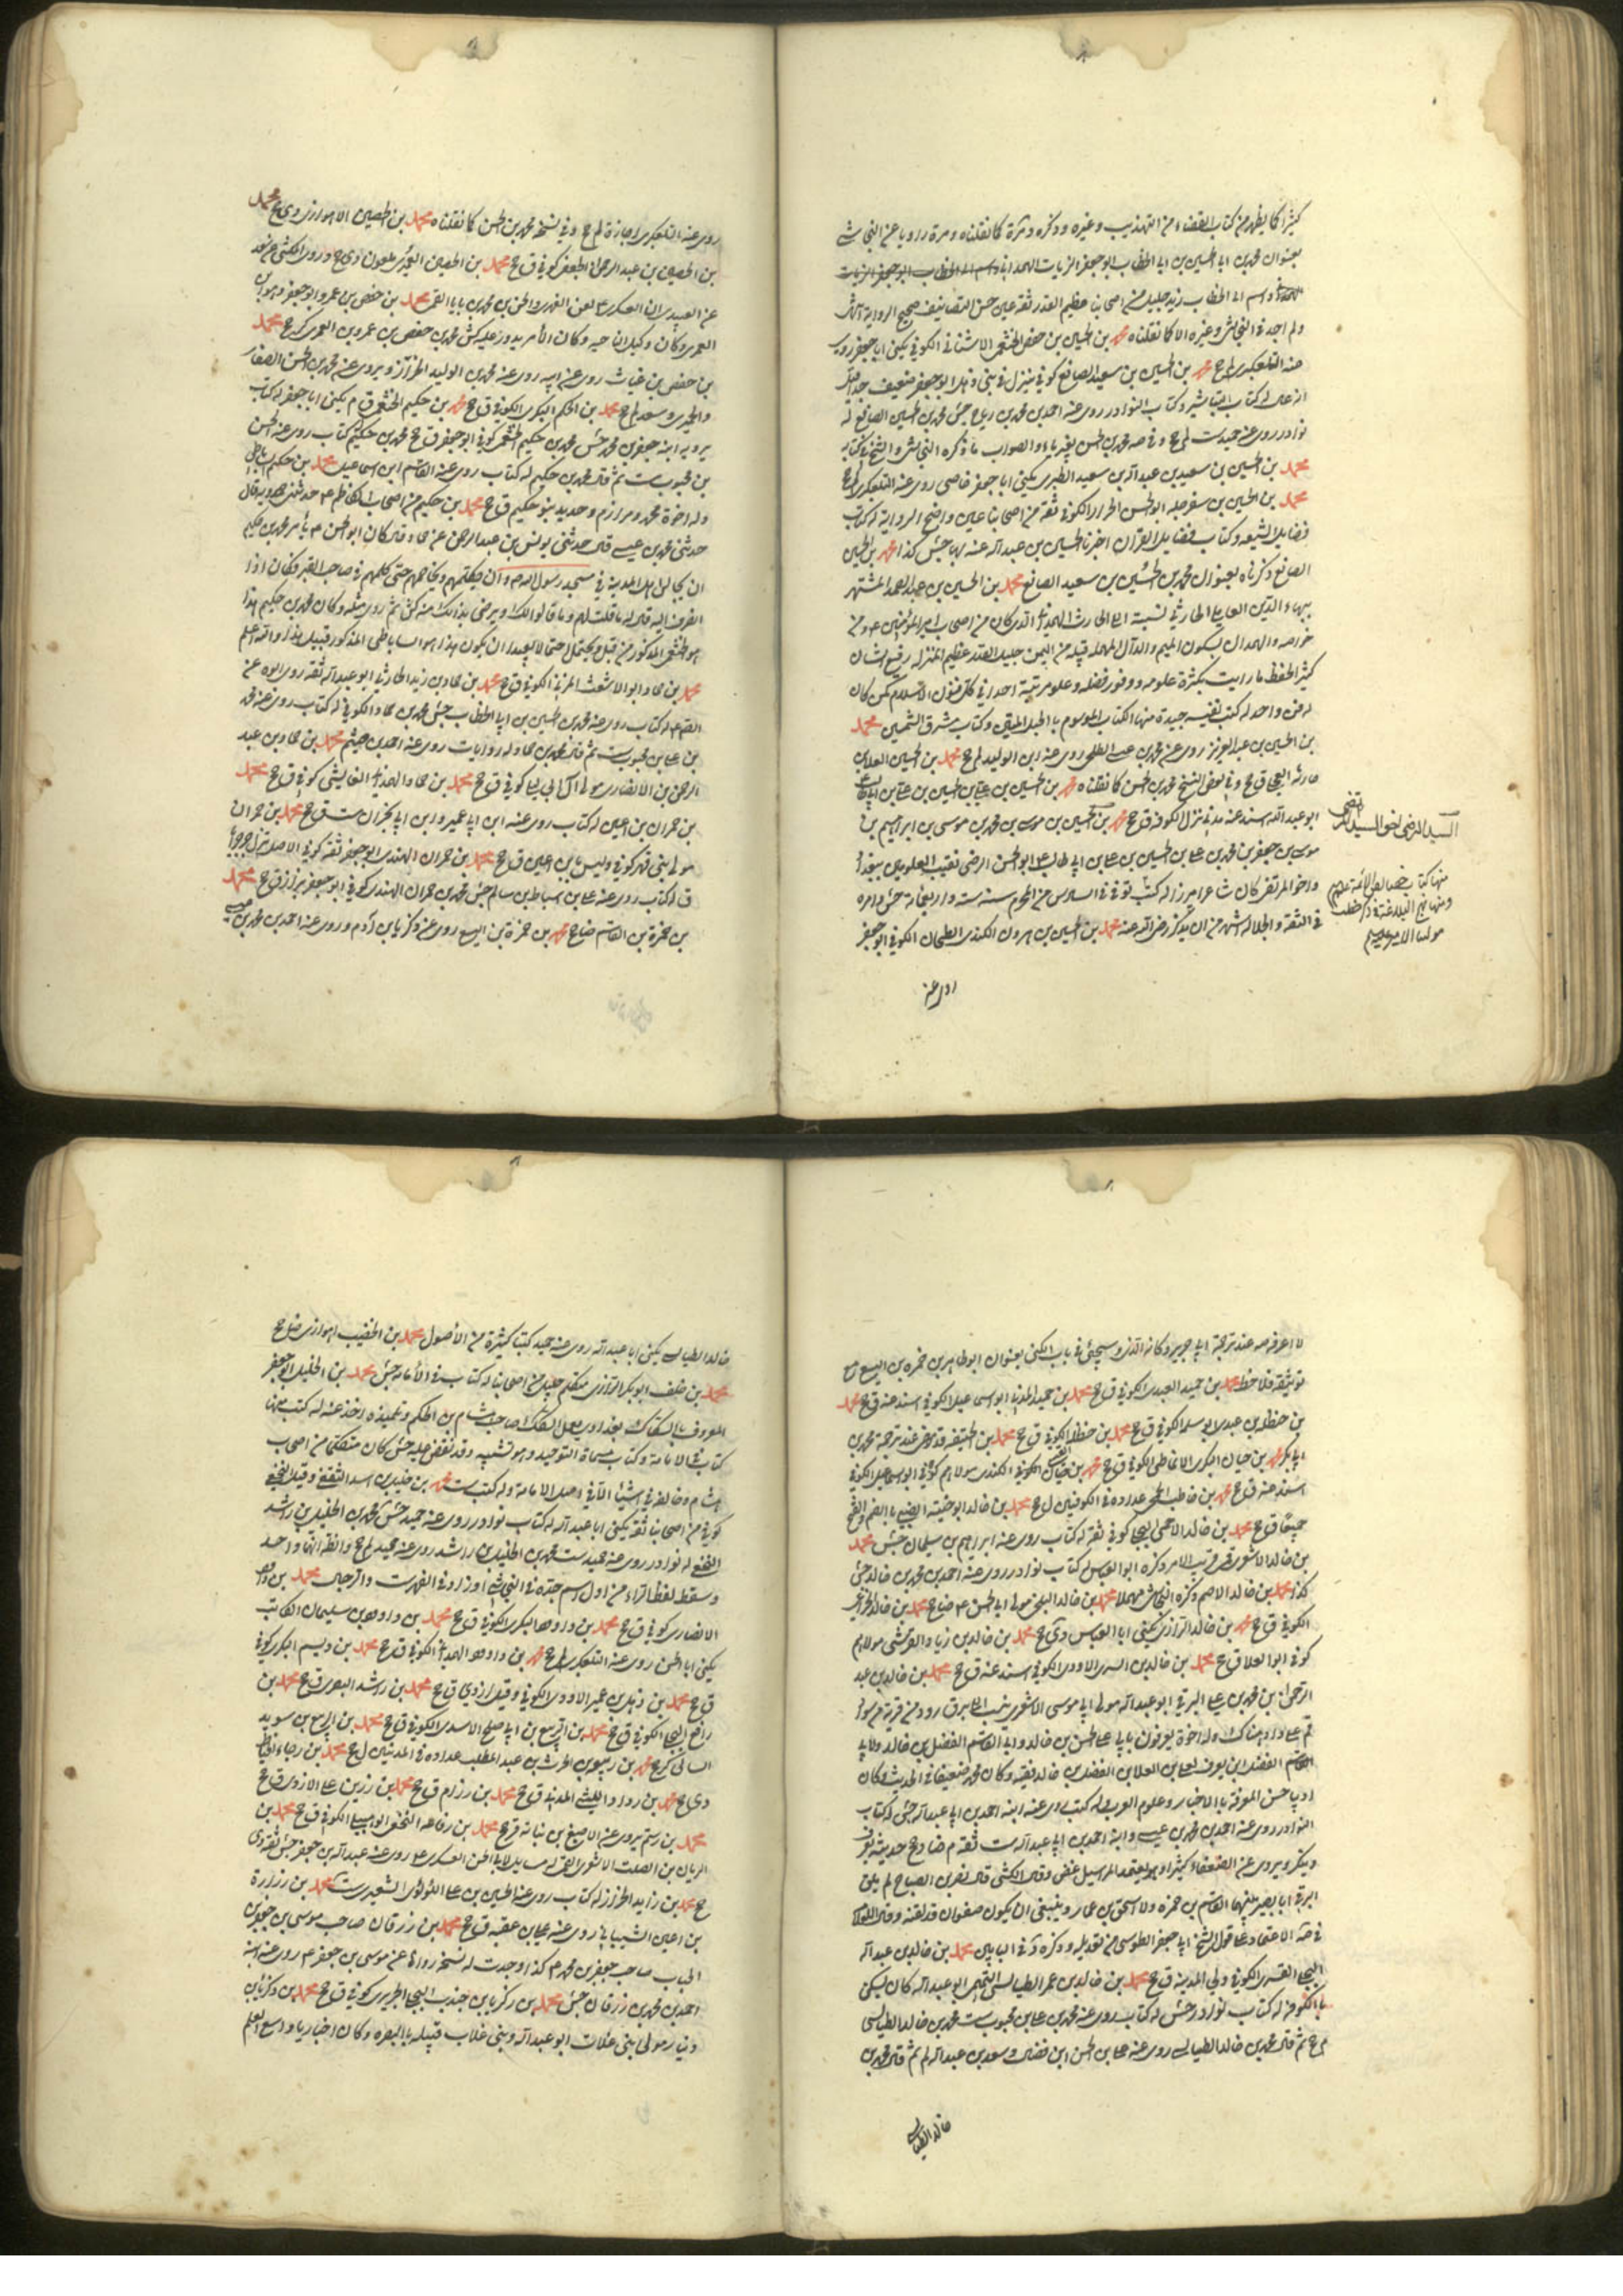 كثيرا كما يظهر من كتاب القضاء من التهذيب وغيره وذكره د مرة كما نقلناه ومرة رويا عن النجاشي
بعنوان محمد بن ابي الحسين بن ابي الخطاب ابو جعفر الزيات الهمداني واسم ابي الخطاب ابو جعفر الزيات
الهمداني واسم ابي الخطاب زيد جليل من اصحابنا عظيم القدر ثقة عين حسن التصانيف صحيح الرواية
ولم اجد في النجاشي وغيره الا كما نقلناه محمد بن الحسين بن حفص الخثعمي الاشناني الكوفي يكنى ابا جعفر روى
عنه التلعكبري لم جخ محمد بن الحسين بن سعيد الصايغ كوفي ينزل في بني ذهل ابو جعفر ضعيف جدا قيل
انه غال له كتاب التباشير وكتاب النوادر روى عنه احمد بن محمد بن رباح جش محمد بن الحسين الصايغ له
نوادر روى عنه حميد ست لم جخ وفي صه محمد بن الحسن بغير ياء والصواب ما ذكره النجاشي والشيخ في كتابه
محمد بن الحسين بن سعيد بن عبد الله بن سعيد الطبري يكنى ابا جعفر خاصي روى عنه التلعكبري لم جخ
محمد بن الحسين بن سفرجله ابو الحسن الخزاز الكوفي ثقة من اصحابنا عين واضح الرواية له كتاب
فضايل الشيعه وكتاب فضايل القرآن اخبرنا الحسين بن عبد الله عنه بها جش كذا محمد بن الحسين
الصايغ ذكرناه بعنوان محمد بن الحسين بن سعيد الصايغ محمد بن الحسين بن عبد الصمد المشتهر
ببهاء الدين العاملي الحارثي نسبة الى الحارث الهمداني الذي كان من اصحاب امير المؤمنين ع ومن
خواصه والهمدان بسكون الميم والدال المهمله قبيله من اليمن جليل القدر عظيم المنزله رفيع الشان
كثير الحفظ ما رايت بكثرة علومه ووفور فضله وعلو مرتبته احدا في كل فنون الاسلام كمن كان
له فن واحد له كتب نفيسه جيدة منها الكتاب الموسوم بالحبل المتين وكتاب مشرق الشمسين محمد
بن الحسين بن عبد العزيز روى عن محمد بن عيسى الطلحي روى عنه ابن الوليد لم جخ محمد بن الحسين العلا بن
حارثه البجلي ق جخ وفي بعض النسخ محمد بن الحسن كما نقلناه محمد بن الحسين بن علي بن الحسين بن علي بن ابيطالب
ابو عبد الله اسند عنه مدني نزل الكوفه ق جخ محمد بن الحسين بن موسى بن محمد بن موسى بن ابراهيم بن
موسى بن جعفر بن محمد بن علي بن الحسين بن علي بن ابي طالب ابو الحسن الرضي نقيب العلويين ببغداد
واخو المرتضى كان شاعرا مبرزا له كتب توفي في السادس من المحرم سنة ست واربعمائة جش وامره
في الثقة والجلاله اشهر من ان يذكر رضي الله عنه محمد بن الحسين بن هرون الكندي الطحان الكوفي ابو جعفر
السيد الرضي اخو السيد المرتضى
منها كتاب خصايص الائمة عليهم
ومنها نهج البلاغة في ذكر خطب
مولانا الامير عليه السلام
روى عنه
روى عنه التلعكبري اجازة لم جخ وفي نسخة محمد بن الحسن كما نقلناه محمد بن الحصين الاهوازي دي جخ محمد
بن الحصين بن عبد الرحمن الجعفي كوفي ق جخ محمد بن الحصين الفهري ملعون دي جخ وروى الكشي عن سعد
عن العبيدي ان العسكري ع لعن الفهري والحسن بن محمد بن بابا القمي محمد بن حفص بن عمرو ابو جعفر وهو ابن
العمري وكان وكيل الناحيه وكان الامر يدور عليه كش محمد بن حفص بن عمرو بن العمري كر جخ محمد
بن حفص بن غياث روى عن ابيه روى عنه محمد بن الوليد الخزاز ويروي عنه محمد بن الحسن الصفار
والحميري وسعد لم جخ محمد بن الحكم البكري الكوفي ق جخ محمد بن حكيم الخثعمي ق م يكنى ابا جعفر له كتاب
يرويه ابنه جعفر بن محمد جش محمد بن حكيم الخثعمي كوفي ابو جعفر ق جخ محمد بن حكيم كتاب روى عنه الحسن
بن محبوب ست ثم قال محمد بن حكيم له كتاب روى عنه القاسم ابن اسماعيل محمد بن حكيم الساباطي
وله اخوة محمد ومرازم وحديد بنو حكيم ق جخ محمد بن حكيم من اصحاب الكاظم ع حدثني حمدويه قال
حدثني محمد بن عيسى قال حدثني يونس بن عبد الرحمن عن حماد قال كان ابو الحسن ع يأمر محمد بن حكيم
ان يجالس اهل المدينة في مسجد رسول الله وان يكلمهم ويخاصمهم حتى كلمهم في صاحب القبر فكان اذا
انصرف اليه قال له ما قلت لهم وما قالوا لك ويرضى بذلك منه كش ثم روى مثله وكان محمد بن حكيم هذا
هو الخثعمي المذكور من قبل ويحتمل احتمالا بعيدا ان يكون هذا هو الساباطي المذكور قبيل هذا والله اعلم
محمد بن حماد ابو الاشعث المزني الكوفي ق جخ محمد بن حماد بن زيد الحارثي ابو عبد الله ثقة روى ابوه عن
الصادق ع له كتاب روى عنه محمد بن الحسين بن ابي الخطاب جش محمد بن حماد الكوفي له كتاب روى عنه محمد
بن علي بن محبوب ست ثم قال محمد بن حماد له روايات روى عنه احمد بن ميثم محمد بن حماد بن عبد
الرحمن بن الانصاري مولى آل ابي ليلى كوفي ق جخ محمد بن حماد الهمذاني الفايشي كوفي ق جخ محمد
بن حمران بن اعين له كتاب روى عنه ابن ابي عمير وابن ابي نجران ست ق جخ محمد بن حمران
مولى بني فهر كوفي وليس بابن اعين ق جخ محمد بن حمران النهدي ابو جعفر ثقة كوفي الاصل نزل جرجرايا
ق له كتاب روى عنه علي بن اسباط بن سالم جش محمد بن حمران النهدي كوفي ابو جعفر بزاز ق جخ محمد
بن حمزة بن القاسم ضا جخ محمد بن حمزة بن اليسع روى عن زكريا بن آدم وروى عنه احمد بن محمد بن عيسى
لا اعرفه صه عند ترجمة ابي جرير وكانه الذي سيجئ في باب الكنى بعنوان ابو طاهر بن حمزه بن اليسع مع
توثيقه فلاحظ محمد بن حميد العبدي الكوفي ق جخ محمد بن حميد المدني ابو اسماعيل الكوفي اسند عنه ق جخ محمد
بن حنظله بن عبدي ابو سلمه الكوفي ق جخ محمد بن حنظله الكوفي ق جخ محمد بن الحنفيه قد مضى عند ترجمة محمد بن
ابي بكر محمد بن حيان البكري الانماطي الكوفي ق جخ محمد بن حيان الكوفي الكندي مولاهم كوفي ابو اسماعيل الكوفي
اسند عنه ق جخ محمد بن خاطب الجمحي عداده في الكوفيين ل جخ محمد بن خالد ابو خيثمة الضبي بالضم والفتح
جميعا ق جخ محمد بن خالد الاحمسي البجلي كوفي ثقة له كتاب روى عنه ابراهيم بن سليمان جش محمد
بن خالد الاشعري قمي قريب الامر ذكره ابو العباس له كتاب نوادر روى عنه احمد بن محمد بن خالد جش
كذا محمد بن خالد الاصم ذكره النجاشي مهملا محمد بن خالد البلخي مولى ابي الحسن ع ضا جخ محمد بن خالد الخزاز
الكوفي ق جخ محمد بن خالد الرازي يكنى ابا العباس دي جخ محمد بن خالد بن زياد القرشي مولاهم
كوفي ابو العلا ق جخ محمد بن خالد بن السري الاودي الكوفي اسند عنه ق جخ محمد بن خالد بن عبد
الرحمن بن محمد بن علي البرقي ابو عبد الله مولى ابي موسى الاشعري ينسب الى برق رود من قرية من سواد
قم على واد هناك وله اخوة يعرفون بابي علي الحسن بن خالد وابي القاسم الفضل بن خالد ولابي
القاسم الفضل ابن يعرف بعلي بن العلا بن الفضل بن خالد فقيه وكان محمد ضعيفا في الحديث وكان
اديبا حسن المعرفة بالاخبار وعلوم العرب له كتب روى عنه ابنه احمد بن ابي عبد الله جش له كتاب
النوادر روى عنه احمد بن محمد بن عيسى وابنه احمد بن ابي عبد الله ست ثقة م ضا د جخ حديثه يعرف
وينكر ويروي عن الضعفاء كثيرا ويعتمد المراسيل غض وقال الكشي قال نصر بن الصباح لم يلق
البرقي ابا بصير بينهما القاسم بن حمزه ولا اسحق بن عمار وينبغي ان يكون صفوان قد لقيه وقال العلامة
في صه الاعتماد على قول الشيخ ابي جعفر الطوسي من تعديله وذكره د في البابين محمد بن خالد بن عبد الله
البجلي القسري الكوفي ولي المدينه ق جخ محمد بن خالد بن عمر الطيالسي التميمي ابو عبد الله كان يسكن
بالكوفه له كتاب نوادر جش له كتاب روى عنه محمد بن علي بن محبوب ست محمد بن خالد الطيالسي
م جخ ثم قال محمد بن خالد الطيالسي روى عنه علي بن الحسن ابن فضال وسعد بن عبد الله لم ثم قال محمد بن
خالد الطيالسي
خالد الطيالسي يكنى ابا عبد الله روى عنه حميد كتبا كثيرة من الاصول محمد بن الخضيب اهوازي ضا جخ
محمد بن خلف ابو بكر الرازي متكلم جليل من اصحابنا له كتاب في الامامه جش محمد بن الخليل ابو جعفر
المعروف بالسكاك بغدادي يعمل السكك صاحب هشام بن الحكم وتلميذه اخذ عنه له كتب منها
كتاب في الامامة وكتاب سماه التوحيد وهو تشبيه وقد نقض عليه جش كان متكلما من اصحاب
هشام وخالفه في اشياء الا في اصل الامامة وله كتب ست محمد بن خليد بن اسد الثقفي وقيل النخعي
كوفي من اصحابنا ثقة يكنى ابا عبد الله له كتاب نوادر روى عنه حميد جش محمد بن الخليل بن راشد
النخعي له نوادر روى عنه حميد ست محمد بن الخليل بن راشد روى عنه حميد لم جخ واظن انهما واحد
وسقط لفظ الراء من اول اسم جده في النجاشي او زاد في الفهرست والرجال محمد بن داود
الانصاري كوفي ق جخ محمد بن داود البكري الكوفي ق جخ محمد بن داود بن سليمان الكاتب
يكنى ابا الحسن روى عنه التلعكبري لم جخ محمد بن داود الهمداني الكوفي ق جخ محمد بن ديسم البكري كوفي
ق جخ محمد بن ذهل بن عمير الاودي الكوفي وقيل ازدي ق جخ محمد بن راشد البصري ق جخ محمد بن
رافع البجلي الكوفي ق جخ محمد بن الربيع بن ابي صلح الاسدي الكوفي ق جخ محمد بن الربيع بن سويد
السائي كر جخ محمد بن ربيعة بن الحرث بن عبد المطلب عداده في المدنيين ل جخ محمد بن رجاء الخياط
دي جخ محمد بن رواد الليثي المدني ق جخ محمد بن رزام ق جخ محمد بن رزين علي الازدي ق جخ
محمد بن رستم يروي عن الاصبغ بن نباتة قر جخ محمد بن رفاعه النخعي الكوفي ق جخ محمد بن
الريان بن الصلت الاشعري القمي له مسايل لابي الحسن العسكري ع روى عنه عبد الله بن جعفر جش ثقة دي
جخ محمد بن زايد الخزاز له كتاب روى عنه الحسين بن علي اللؤلؤي الشعيري ست محمد بن زرارة
بن اعين الشيباني روى عنه علي بن عقبه ق جخ محمد بن زرقان صاحب موسى بن جعفر بن
الحباب صاحب جعفر بن محمد ع كذا وجدت له نسخه رواها عن موسى بن جعفر ع روى عنه ابنه
احمد بن محمد بن زرقان جش محمد بن زكريا بن جندب البجلي الجريري كوفي ق جخ محمد بن زكريا بن
دينار مولى بني غلاب ابو عبد الله وبني غلاب قبيله بالبصره وكان اخباريا واسع العلم